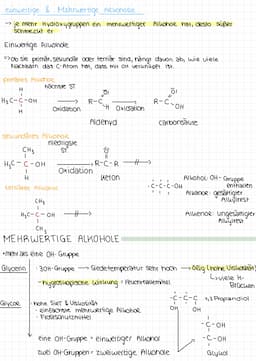 einwertige & Mehrwertige Alkohole
→ je mehr Hydroxygruppen ein mehrwertiger Alkohol hat, desto süßer
schmeckt er
Einwertige Alkohole
→ Ob sie primär, sekundär oder tertiär sind, hängt davon ab, wie viele
Nachbarn das C-Atom hat, dass mit OH verknüpft ist.
primäres Alkohol
höchste ST
H₃C-C-OH
Oxidation
R-C
H
Oxidation
R-C
OH
Aldehyd
Carbonsäure
sekundäres Alkohol
niedrigste
ST
CH₃
H₃C-C-OH
H
Oxidation
R-C-R
Keton
tertiäres Alkohol
CH₃
H₃C-C-OH
CH₃
-C-C-C-OH
Alkohol: OH-Gruppe
enthalten
Alkane: gesättigter
Alkylrest
Alkene: ungesättigter
Alkylrest
MEHRWERTIGE ALKOHOLE
•mehr als eine OH-Gruppe
Glycerin: 3 OH-Gruppe → Siedetemperatur sehr hoch → ölig (hohe Viskosität)
↳ viele H-
Brücken
-hygroskopische Wirkung = Feuchtebindemittel
Glycol: -hohe Siet & Viskosität
- einfachste mehrwertige Alkohol
- Frostschutzmittel
-C-C-C
OH OH
1,3 Propandiol
-C-OH
-C-OH
Glykol
eine OH-Gruppe = einwertiger Alkohol
zwei OH-Gruppen = zweiwertige Alkohole